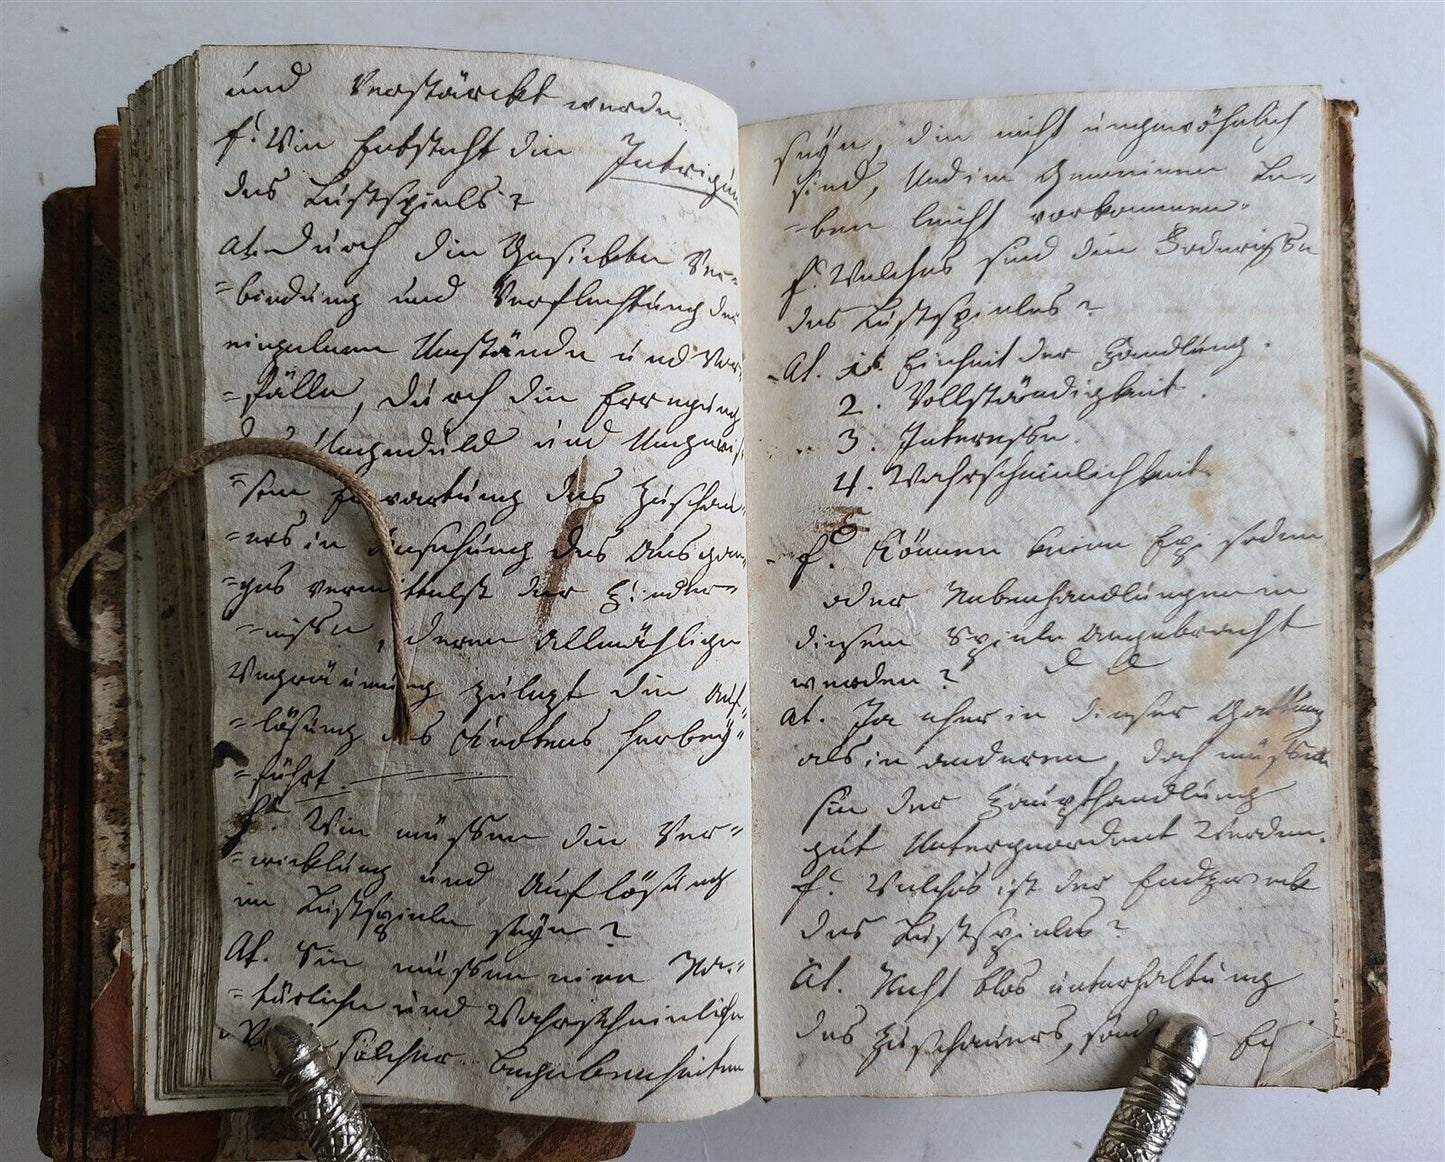 und Verstärckt werde.
f: Wie Entsteht die Intrigue
des Lustspiels?
At. Durch die Geschickte Ver=
=bindung und Verflechtung der
einzelnen Umstände und Vor=
=fälle, durch die Erregung
Ungeduld und Ungewis=
=sen Erwartung des Zuschau=
=ers in Ansehung des Ausgan=
=ges vermittelst der Hinder=
=nisse, deren Allmählige
Wegräumung zuletzt die Auf=
=lösung des Knotens herbey=
=führt.
f: Wie müssen die Ver=
=wicklung und Auflösung
im Lustspiele seyn?
At. Sie müssen eine Na=
=türliche und Wahrscheinliche
solcher Begebenheiten
seyn, die nicht ungewöhnlich
sind, Und im Gemeinen Le=
=ben leicht vorkommen.
f: Welches sind die Erfordernisse
des Lustspieles?
At. 1. Einheit der Handlung.
2. Vollständigkeit.
3. Interesse.
4. Wahrscheinlichkeit
f: Können keine Episoden
oder Nebenhandlungen in
diesem Spiele Angebracht
werden?
At. Ja eher in dieser Gattung
als in anderen, doch müssen
sie der Haupthandlung
gut Untergeordnet Werden.
f: Welches ist der Endzweck
des Lustspieles?
At. Nicht blos unterhaltung
des Zuschauers,